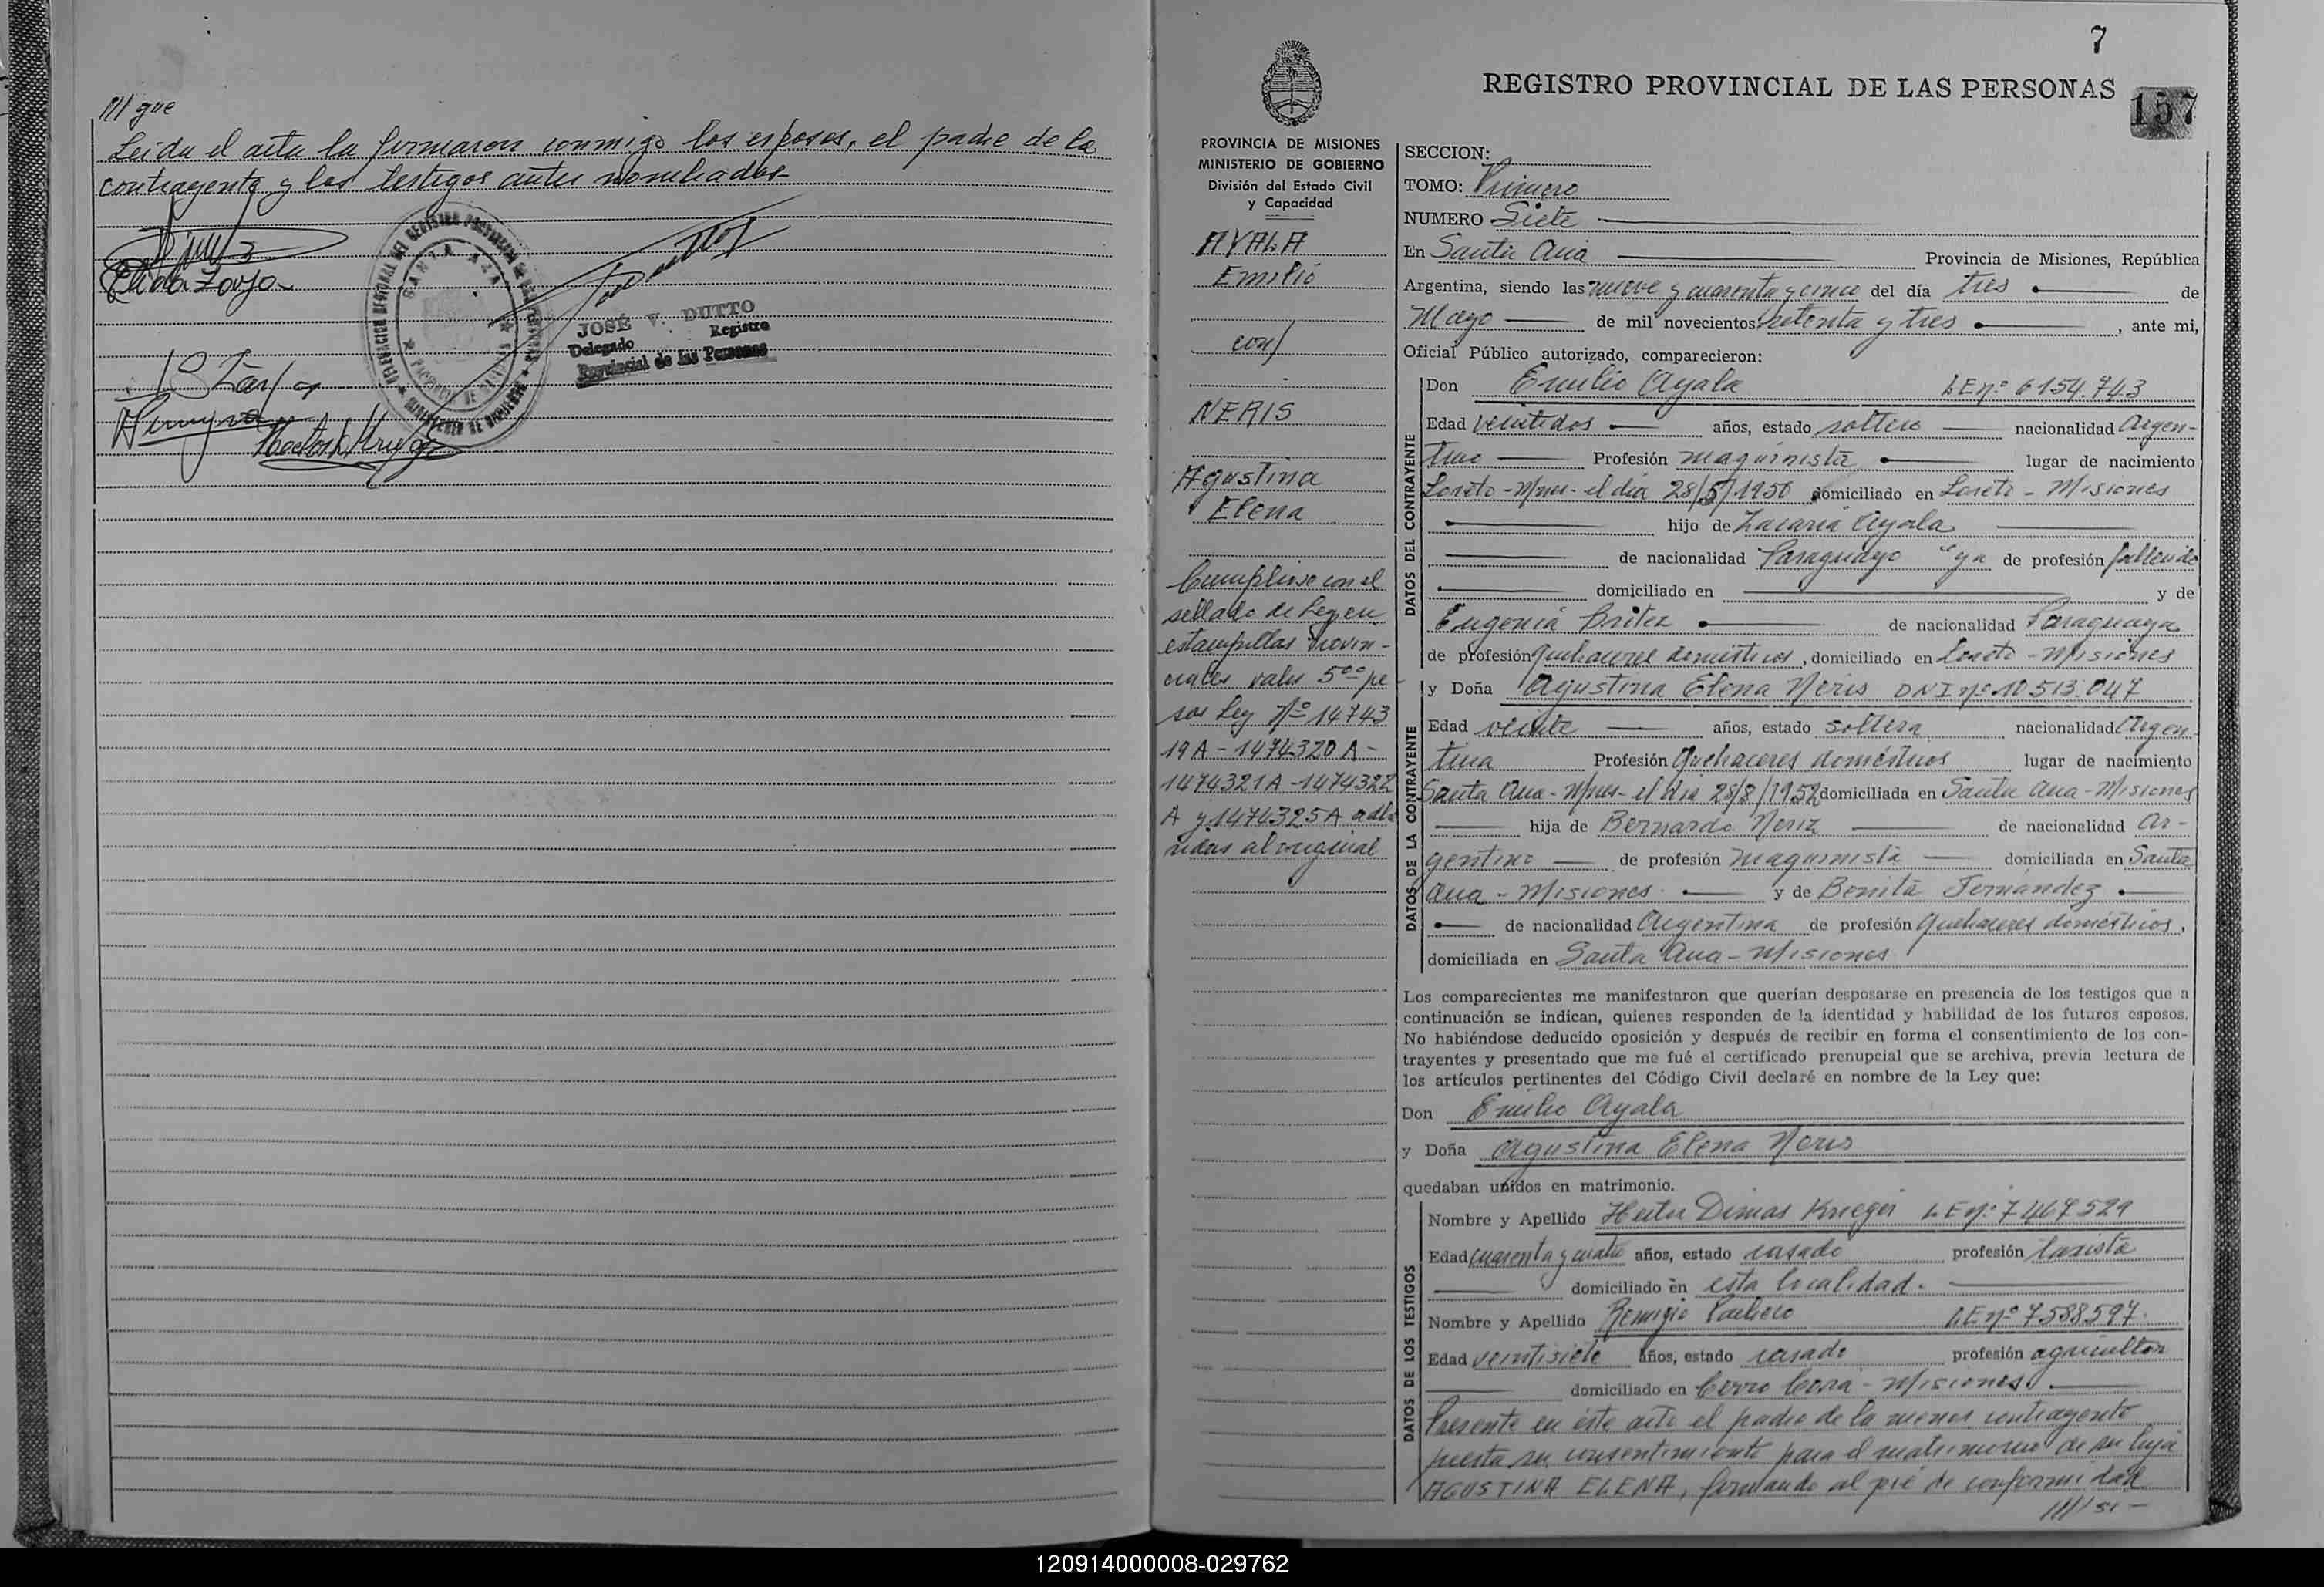 /// que
Leída el acta la firmaron conmigo los esposos, el padre de la
contrayente y los testigos antes nombrados
SANTA ANA
JOSÉ V. DUTTO
Delegado Registro
Provincial de las Personas
7
REGISTRO PROVINCIAL DE LAS PERSONAS
157
PROVINCIA DE MISIONES
MINISTERIO DE GOBIERNO
División del Estado Civil
y Capacidad
AYALA
Emilio
con/
NERIS
Agustina
Elena
Cumplióse con el
sellado de Ley en
estampillas Provin-
ciales valor 5°° pe
sos Ley Nº 14743
19 A - 1474320 A -
1474321 A - 1474322
A y 1474325 A adhe
ridas al original
SECCION:
TOMO: Primero
NUMERO Siete
En Santa Ana Provincia de Misiones, República
Argentina, siendo las nueve y cuarenta y cinco del día tres de
Mayo de mil novecientos setenta y tres, ante mi,
Oficial Público autorizado, comparecieron:
DATOS DEL CONTRAYENTE
Don Emilio Ayala LE nº 6154.743
Edad veintidos años, estado soltero nacionalidad Argen-
tino Profesión maquinista lugar de nacimiento
Loreto - Mnes - el día 28/5/1950 domiciliado en Loreto - Misiones
hijo de Zacaria Ayala
de nacionalidad Paraguayo "ya de profesión fallecido
domiciliado en y de
Eugenia Britez de nacionalidad Paraguaya
de profesión Quehaceres domésticos, domiciliado en Loreto - Misiones
DATOS DE LA CONTRAYENTE
y Doña Agustina Elena Neris DNI nº 10.513.047
Edad veinte años, estado soltera nacionalidad Argen-
tina Profesión Quehaceres domésticos lugar de nacimiento
Santa Ana - Mnes - el día 28/8/1952 domiciliada en Santa Ana - Misiones
hija de Bernardo Neriz de nacionalidad Ar-
gentino de profesión maquinista domiciliada en Santa
Ana - Misiones y de Benita Fernández
de nacionalidad Argentina de profesión Quehaceres domésticos,
domiciliada en Santa Ana - Misiones
Los comparecientes me manifestaron que querían desposarse en presencia de los testigos que a
continuación se indican, quienes responden de la identidad y habilidad de los futuros esposos.
No habiéndose deducido oposición y después de recibir en forma el consentimiento de los con-
trayentes y presentado que me fué el certificado prenupcial que se archiva, previa lectura de
los artículos pertinentes del Código Civil declaré en nombre de la Ley que:
Don Emilio Ayala
y Doña Agustina Elena Neris
quedaban unidos en matrimonio.
DATOS DE LOS TESTIGOS
Nombre y Apellido Hector Dimas Krieger LE nº 7467529
Edad cuarenta y cuatro años, estado casado profesión taxista
domiciliado en esta localidad.
Nombre y Apellido Remigio Pacheco LE nº 7588597.
Edad veintisiete años, estado casado profesión agricultor
domiciliado en Cerro Corá - Misiones
Presente en éste acto el padre de la menor contrayente
presta su consentimiento para el matrimonio de su hija
AGUSTINA ELENA, firmando al pié de conformidad
////si -
120914000008-029762